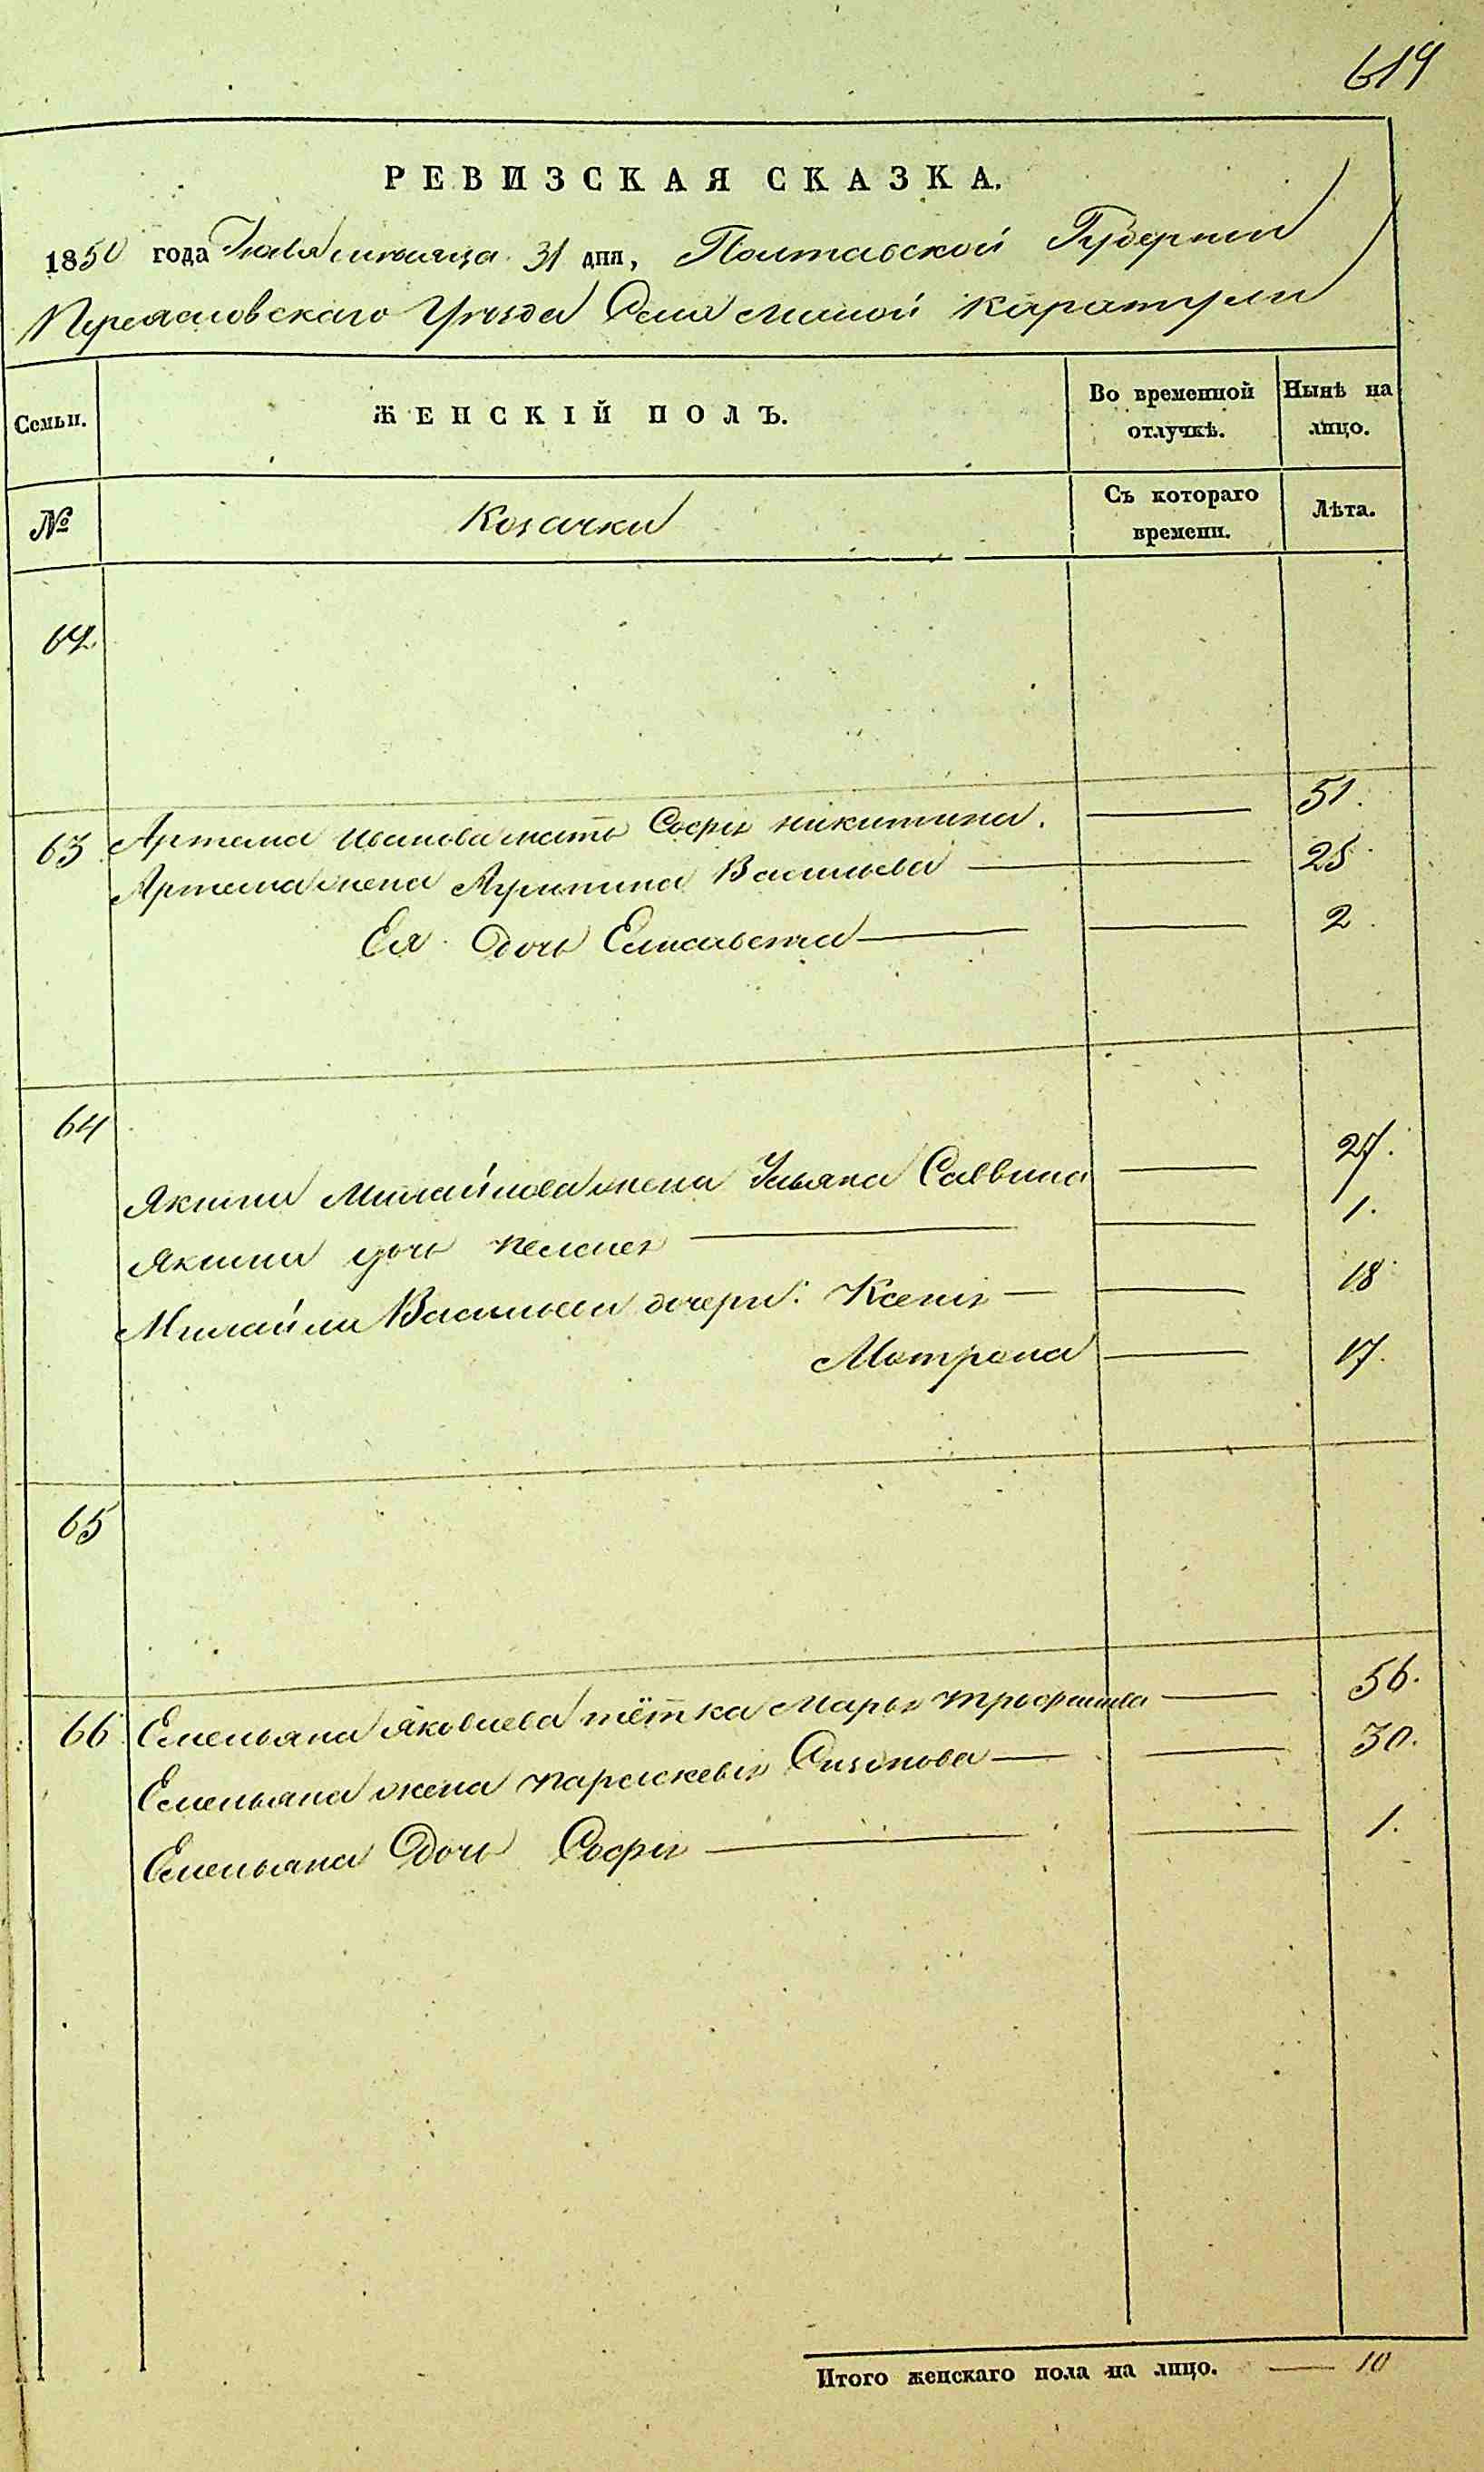 619
РЕВИЗСКАЯ СКАЗКА.
1850 года Іюля месяца 31 дня, Полтавской Губернии
Переасловскаго Уезда Села малой каратули
Семьи. ЖЕНСКІЙ ПОЛЪ. Во временной отлучкѣ. Нынѣ на лицо.
№ Козачки Съ котораго времени. Лѣта.
62
63 Артема Иванова мать Софія никитина. 51.
Артема жена Агрипина Васильева 25
Ея Дочь Елисавета 2.
64
Якима Михайлова жена Ульяна Саввина 27.
Якима дочь пелагея 1.
Михайли Васильева дочери: Ксенія 18
Мотрона 17.
65
66 Емельяна Яковлева тётка Марья трофимова 56.
Емельяна жена параскевія Сизонова 30.
Емельяна Дочь Софія 1.
Итого женскаго пола на лицо. 10